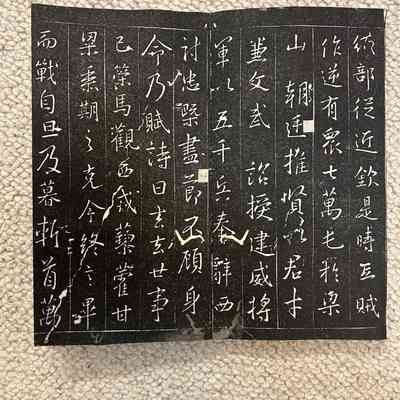 部從近欽是時互賊
作逆有眾七萬屯於梁
山朝廷推賢以君才
兼文武詔授建威將
軍以五千兵奉辭西
討忠槩盡節不顧身
命乃賦詩曰去去世事
已策馬觀西戎藜藿甘
梁黍期之克令終言畢
而戰自旦及暮斬首萬